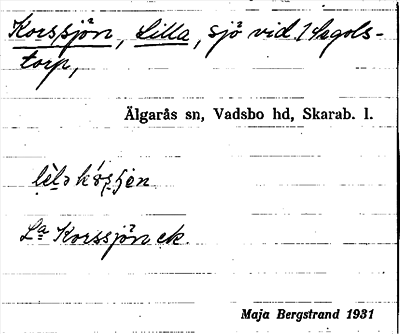 Korssjön, Lilla, sjö vid
torp,
Älgarås sn, Vadsbo hd, Skarab. l.
La Korssjön ek.
Maja Bergstrand 1931